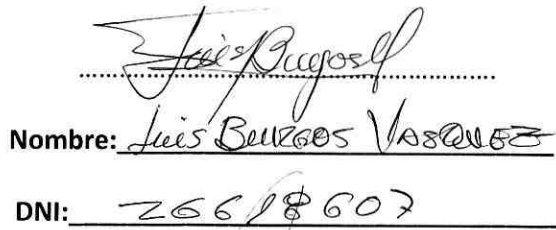 Luis Burgos V
Nombre: Luis BURGOS VASQUEZ
DNI: 26618607